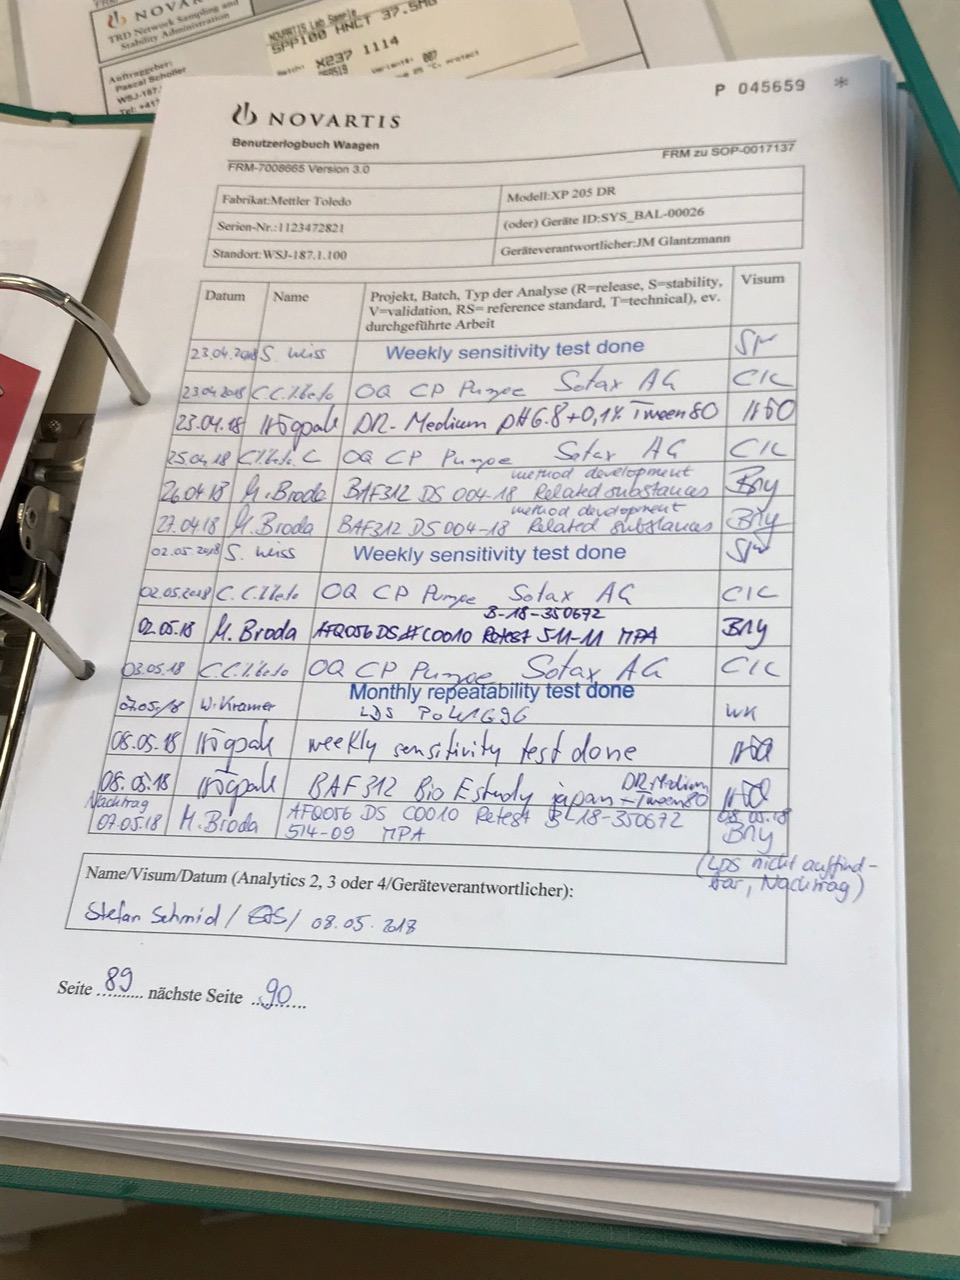 NOVARTIS
TRD Network Sampling and
Stability Administration
Auftraggeber:
Pascal Scholler
WSJ-187.
Tel: +41
NOVARTIS Lab Sample
SPP100 HNCT 37.5MG
X237 1114
P 045659 *
NOVARTIS
Benutzerlogbuch Waagen
FRM-7008665 Version 3.0 FRM zu SOP-0017137
Fabrikat:Mettler Toledo Modell:XP 205 DR
Serien-Nr.:1123472821 (oder) Geräte ID:SYS_BAL-00026
Standort:WSJ-187.1.100 Geräteverantwortlicher:JM Glantzmann
Datum Name Projekt, Batch, Typ der Analyse (R=release, S=stability, Visum
V=validation, RS= reference standard, T=technical), ev.
durchgeführte Arbeit
23.04.2018 S. Weiss Weekly sensitivity test done
23.04.2018 OQ CP Pumpe Sotax AG CIC
23.04.18 DR-Medium pH 6.8+0,1% Tween80
25.04.18 OQ CP Pumpe Sotax AG CIC
method development
26.04.18 M. Broda BAF312 DS 004-18 Related substances Bny
method development
27.04.18 M. Broda BAF312 DS 004-18 Related substances Bny
02.05.2018 S. Weiss Weekly sensitivity test done
02.05.2018 OQ CP Pumpe Sotax AG CIC
B-18-350672
02.05.18 M. Broda AFQ056 DS C0010 Retest 511-11 MPA Bny
03.05.18 OQ CP Pumpe Sotax AG CIC
Monthly repeatability test done
07.05.18 W. Kramer LDS WK
08.05.18 weekly sensitivity test done
DR. Medium
08.05.18 BAF312 Bio E study japan +Tween80
Nachtrag AFQ056 DS C0010 Retest B-18-350672 08.05.18
07.05.18 M. Broda 514-09 MPA Bny
(LDS nicht auffind-
bar, Nachtrag)
Name/Visum/Datum (Analytics 2, 3 oder 4/Geräteverantwortlicher):
Stefan Schmid / / 08.05.2018
Seite 89 nächste Seite 90